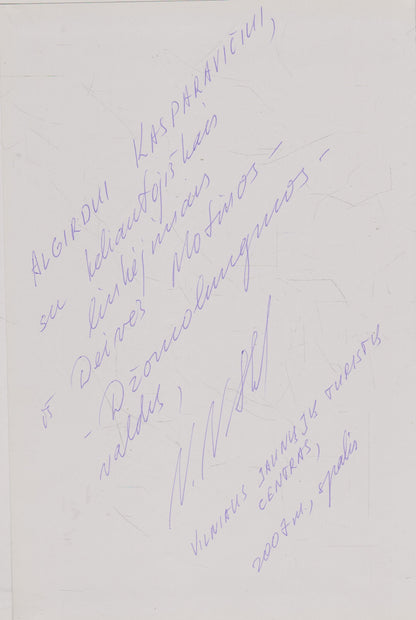 ALGIRDUI KASPARAVIČIUI,
su keliautojiškais
linkėjimais
iš Deivės Motinos -
- Džomolungmos -
valdų,
VILNIAUS JAUNŲJŲ TURISTŲ
CENTRAS,
2007 m., spalis